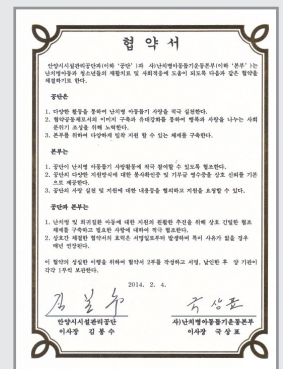 협 약 서
안양시시설관리공단과(이하 '공단' )과 사)난치병아동돕기운동본부(이하 '본부' )는
난치병아동과 청소년들의 재활치료 및 사회적응에 도움이 되도록 다음과 같은 협약을
체결하기로 한다.
공단은
1. 다양한 활동을 통하여 난치병 아동돕기 사랑을 적극 실천한다.
2. 협약공동체로서의 이미지 구축과 유대강화를 통하여 행복과 사랑을 나누는 사회
분위기 조성을 위해 노력한다.
3. 본부를 위하여 다양하게 밀착 지원 할 수 있는 체제를 구축한다.
본부는
1. 공단이 난치병 아동돕기 사랑활동에 적극 참여할 수 있도록 협조한다.
2. 공단의 다양한 지원방식에 대한 봉사확인증 및 기부금 영수증을 상호 신뢰를 기본
으로 제공한다.
3. 공단의 사랑 실천 및 지원에 대한 내용들을 협의하고 지원을 요청할 수 있다.
공단과 본부는
1. 난치병 및 희귀질환 아동에 대한 지원의 원활한 추진을 위해 상호 긴밀한 협조
체제를 구축하고 필요한 사항에 대하여 적극 협조한다.
2. 상호간 체결한 협약서의 효력은 서명일로부터 발생하며 특이 사유가 없을 경우
매년 연장된다.
이 협약의 성실한 이행을 위하여 협약서 2부를 작성하고 서명, 날인한 후 상 기관이
각각 1부씩 보관한다.
2014. 2. 4.
안양시시설관리공단 사)난치병아동돕기운동본부
이사장 김 봉 수 이사장 국 상 표